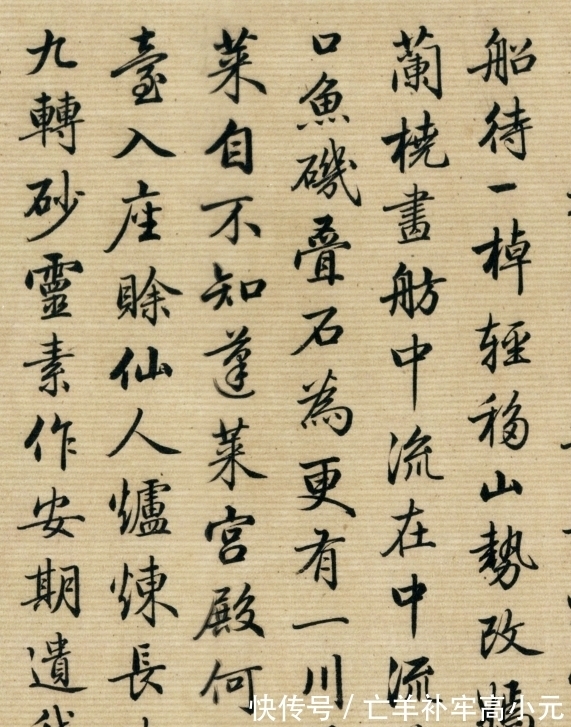 船待一棹輕移山勢改
蘭橈畫舫中流在中流
口魚磯叠石為更有一川
莱自不知蓬莱宮殿何
臺入座賒仙人爐煉長
九轉砂靈素作安期遺
快传号 / 亡羊补牢高小元